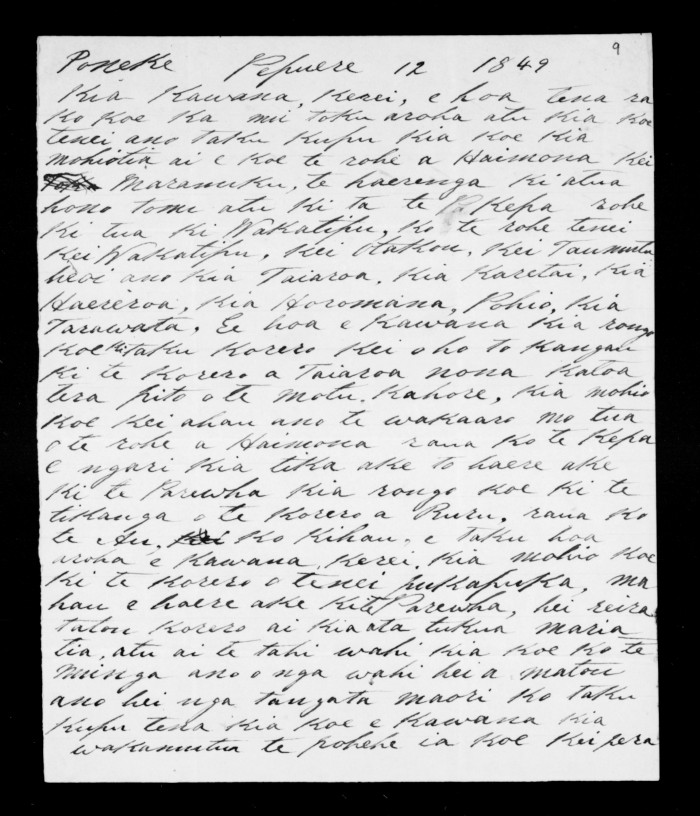 9
Poneke Pepuere 12 1849
Kia Kawana, Kerei, e hoa tena ra
ko koe ka nui toku aroha atu kia koe
tenei ano taku kupu kia koe kia
mohiotia ai e koe te rohe a Haimona kei
Maranuku, te haerenga ki atua
hono tonu atu ki ta te Kepa rohe
ki tua ki Wakatipu, ko te rohe tenei
kei Wakatipu, kei Otakou, kei Taumutu
heoi ano kia Taiaroa, kia Karetai, kia
Haereroa, kia Horomona, Pohio, kia
Tarawata, Ee hoa e Kawana kia rongo
koe ki taku korero kei oho to kangau
ki te korero a Taiaroa nona katoa
tera pito o te motu. Kahore, kia mohio
koe kei ahau ano te wakaaro mo tua
o te rohe a Haimona raua ko te Kepa
e ngari kia tika ake to haere ake
ki te Parewha kia rongo koe ki te
tikanga o te korero a Ruru, raua ko
te Au, ko Kihau, e taku hoa
aroha e Kawana, Kerei, kia mohio koe
ki te korero o tenei pukapuka, ma
hau e haere ake ki te Parewha, hei reira
tatou korero ai kia ata tukua maria
tia, atu ai te tahi wahi kia koe ko te
nuinga ano o nga wahi hei a matou
ano hei nga tangata maori ko taku
kupu tena kia koe e Kawana kia
wakamutua te pohehe ia koe kei pera